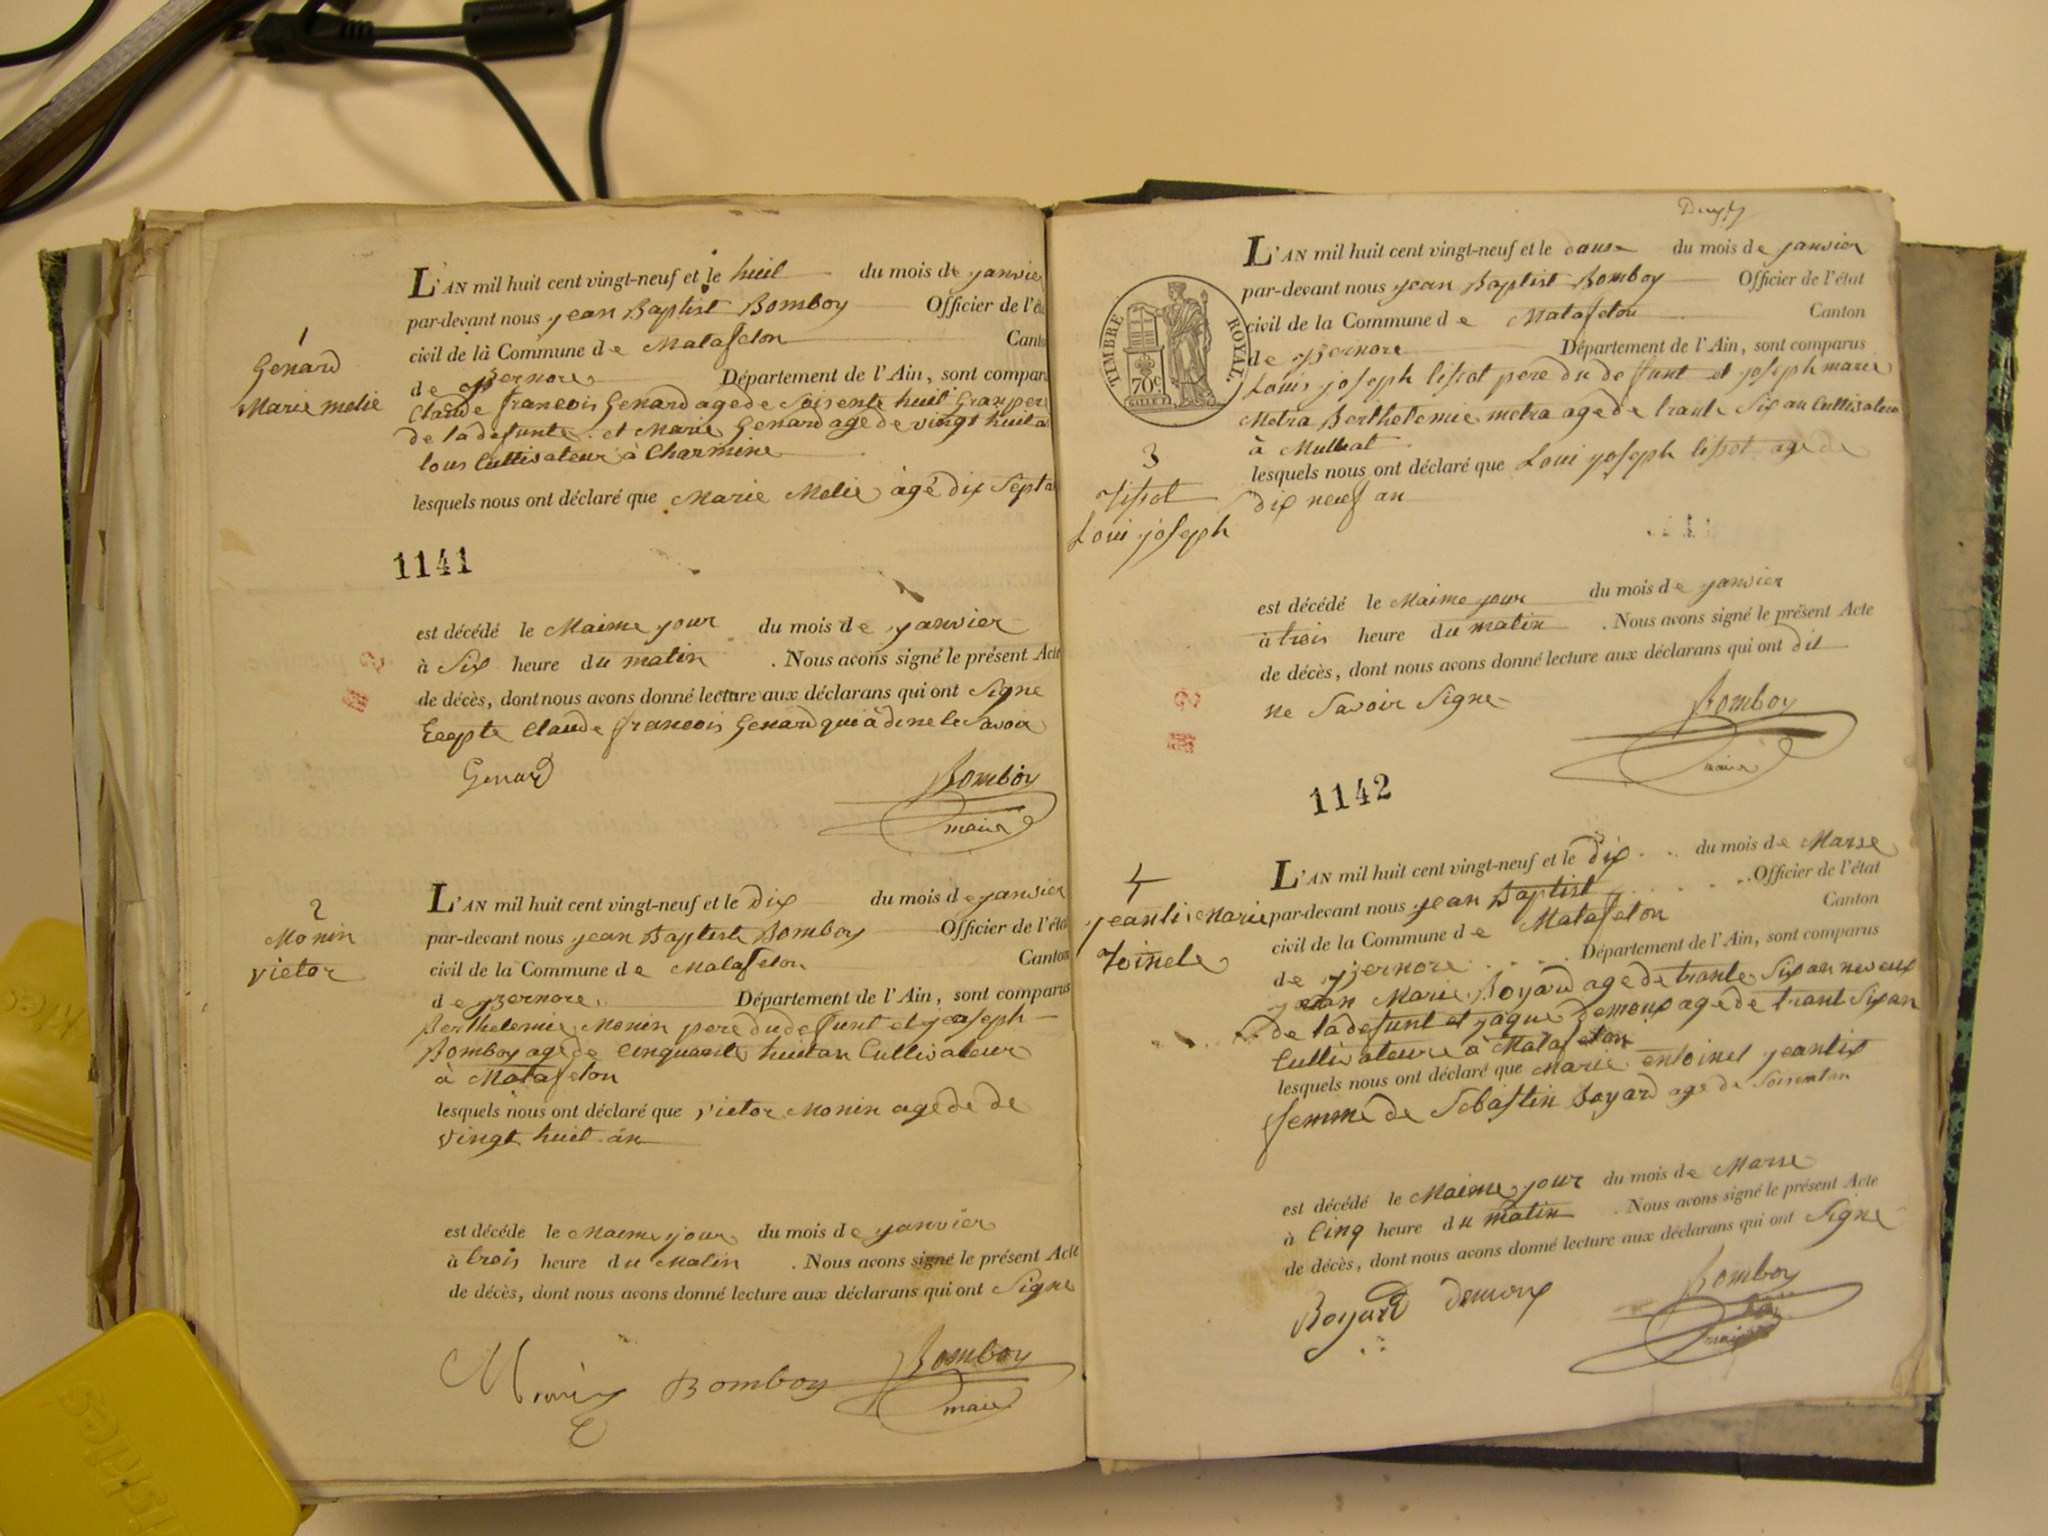 1
Genard
Marie melie
L'AN mil huit cent vingt-neuf et le huit du mois de janvier
par-devant nous jean Baptist Bomboy Officier de l'éta
civil de la Commune de Matafelon Canto
de yzernore Département de l'Ain, sont compar
Claude francois Genard age de Soisente huit Gran pere
de la defunte et Marie Genard age de vingt huit a
tous Cultivateur à Charmine
lesquels nous ont déclaré que Marie Melie âgé dix Sept a
1141
est décédé le Maime jour du mois de janvier
à Six heure du matin . Nous avons signé le présent Acte
de décès, dont nous avons donné lecture aux déclarans qui ont Signe
Ecepte Claude francois Genard qui à di ne le Savoir
Genard Bomboy
maire
2
Monin
victor
L'AN mil huit cent vingt-neuf et le Dix du mois de janvier
par-devant nous jean Baptiste Bomboy Officier de l'éta
civil de la Commune de Matafelon Canton
de yzernore Département de l'Ain, sont comparus
Berthelemie Monin pere du defunt et joseph
Bomboy age de Cinquante huit an Cultivateur
à Matafelon
lesquels nous ont déclaré que victor Monin age de de
vingt huit an
est décédé le Maime jour du mois de janvier
à trois heure du Matin . Nous avons signé le présent Acte
de décès, dont nous avons donné lecture aux déclarans qui ont Signe
Bomboy Bomboy
maire
L'AN mil huit cent vingt-neuf et le dause du mois de janvier
par-devant nous jean Baptist Bomboy Officier de l'état
civil de la Commune de Matafelon Canton
de yzernore Département de l'Ain, sont comparus
TIMBRE ROYAL.
70c
Louis joseph tissot pere du defunt et joseph marie
Metra Berthelemie metra age de trante Six an Cultivateur
à Mulliat
3
tissot
Loui joseph
lesquels nous ont déclaré que Loui joseph tissot age de
dix neuf an
est décédé le Maime jour du mois de janvier
à trois heure du matin . Nous avons signé le présent Acte
de décès, dont nous avons donné lecture aux déclarans qui ont dit
ne Savoir Signe
Bomboy
maire
1142
4
jeantis Marie
toinete
L'AN mil huit cent vingt-neuf et le dix du mois de Marse
par-devant nous jean Baptist Officier de l'état
civil de la Commune de Matafelon Canton
de yzernore Département de l'Ain, sont comparus
jean Marie Boyard age de trante Six an neveux
de la defunt et jaque Demoux age de trant Six an
Cultivateure à Matafelon
lesquels nous ont déclaré que Marie entoinet jeantis
femme de Sebastin Boyard age de Soisentan
est décédé le Maime jour du mois de Marse
à Cinq heure du matin . Nous avons signé le présent Acte
de décès, dont nous avons donné lecture aux déclarans qui ont Signe
Boyard Demoux Bomboy
maire